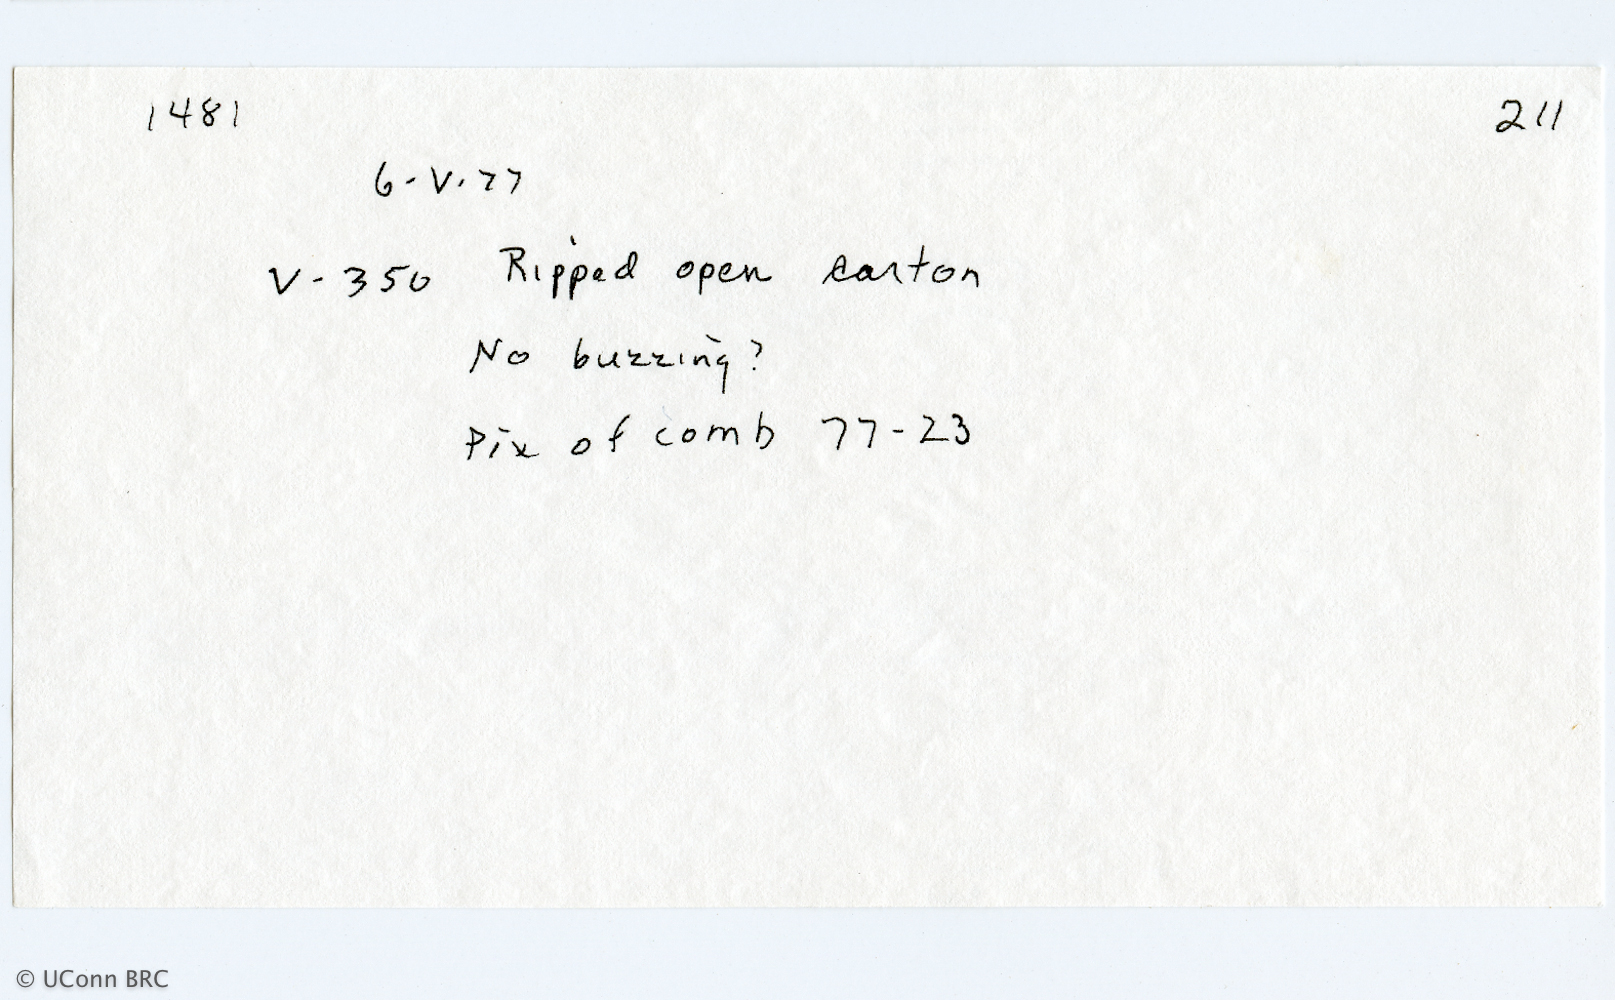 1481
211
6-V-77
V-350 Ripped open carton
No buzzing?
Pix of comb 77-23
© UConn BRC